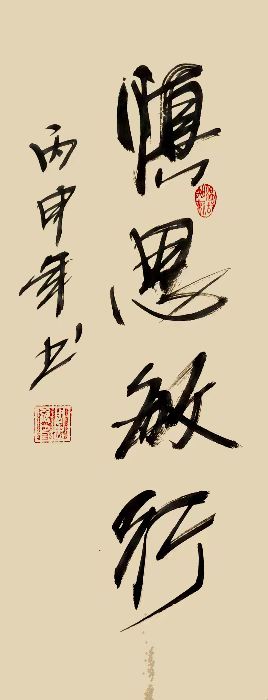 慎思敏行
丙申年书